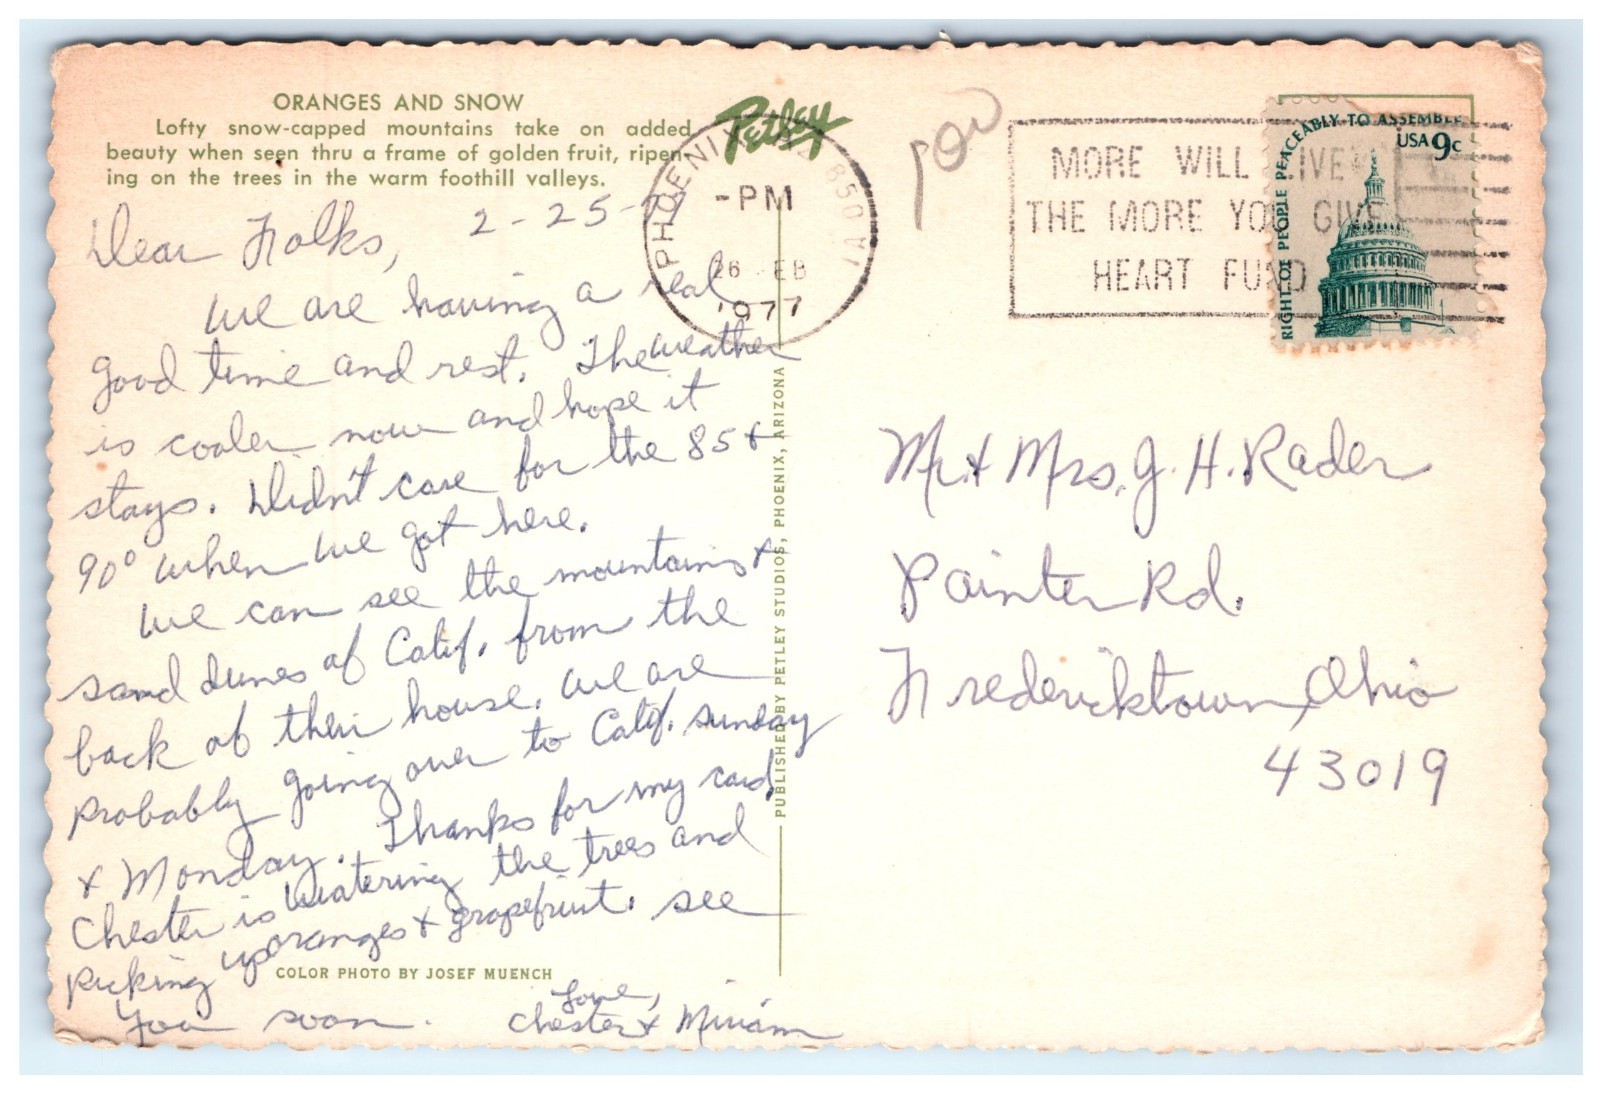 ORANGES AND SNOW
Lofty snow-capped mountains take on added
beauty when seen thru a frame of golden fruit, ripen-
ing on the trees in the warm foothill valleys.
Petley
Dear Folks, 2-25-
We are having a real
good time and rest. The weather
is cooler now and hope it
stays. Didn't care for the 85 &
90° when we got here.
We can see the mountains &
sand dunes of Calif. from the
back of their house. We are
probably going over to Calif. Sunday
& Monday. Thanks for my card.
Chester is watering the trees and
picking up oranges & grapefruit. See
you soon.
Love,
Chester & Miriam
COLOR PHOTO BY JOSEF MUENCH
PUBLISHED BY PETLEY STUDIOS, PHOENIX, ARIZONA
PHOENIX, AZ 850
-PM
26 FEB
1977
MORE WILL LIVE
THE MORE YOU GIVE
HEART FUND
RIGHT OF PEOPLE PEACEABLY TO ASSEMBLE
USA 9c
Mr & Mrs. J. H. Rader
Painter Rd.
Fredericktown, Ohio
43019